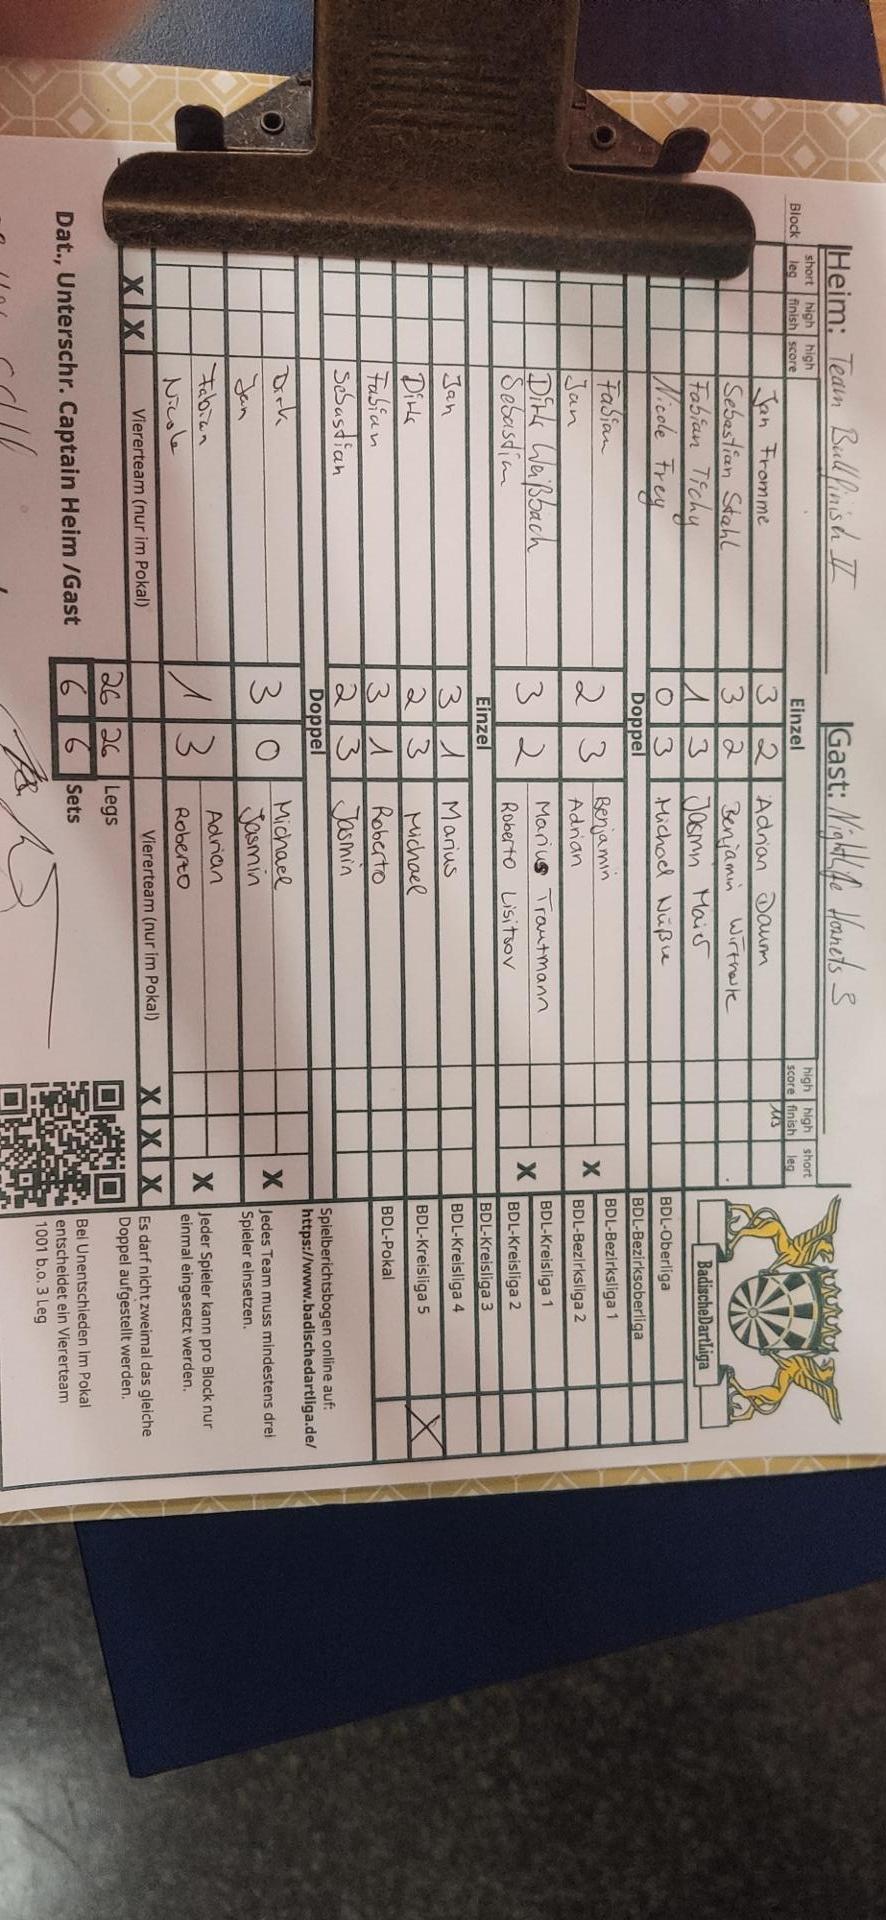 Heim: Team Bullfinish II
Gast: Nightlife Hornets 3
Block short leg high finish high score Einzel high score high finish short leg
Jan Fromme 3 2 Adrian Daum 113
Sebastian Stahl 3 2 Benjamin
Fabian Tichy 1 3 Jasmin Maier
Nicole Frey 0 3 Michael
Doppel
Fabian 2 3 Benjamin
Jan Adrian X
Dirk Weißbach 3 2 Marius Trautmann
Sebastian Roberto Lisitsov X
Einzel
Jan 3 1 Marius
Dirk 2 3 Michael
Fabian 3 1 Roberto
Sebastian 2 3 Jasmin
Doppel
Dirk 3 0 Michael
Jan Jasmin X
Fabian 1 3 Adrian
Nicole Roberto X
X X Viererteam (nur im Pokal) Viererteam (nur im Pokal) X X X
26 26 Legs
Dat., Unterschr. Captain Heim /Gast 6 6 Sets
BadischeDartLiga
BDL-Oberliga
BDL-Bezirksoberliga
BDL-Bezirksliga 1
BDL-Bezirksliga 2
BDL-Kreisliga 1
BDL-Kreisliga 2
BDL-Kreisliga 3
BDL-Kreisliga 4
BDL-Kreisliga 5 X
BDL-Pokal
Spielberichtsbogen online auf:
https://www.badischedartliga.de/
Jedes Team muss mindestens drei
Spieler einsetzen.
Jeder Spieler kann pro Block nur
einmal eingesetzt werden.
Es darf nicht zweimal das gleiche
Doppel aufgestellt werden.
Bei Unentschieden im Pokal
entscheidet ein Viererteam
1001 b.o. 3 Leg